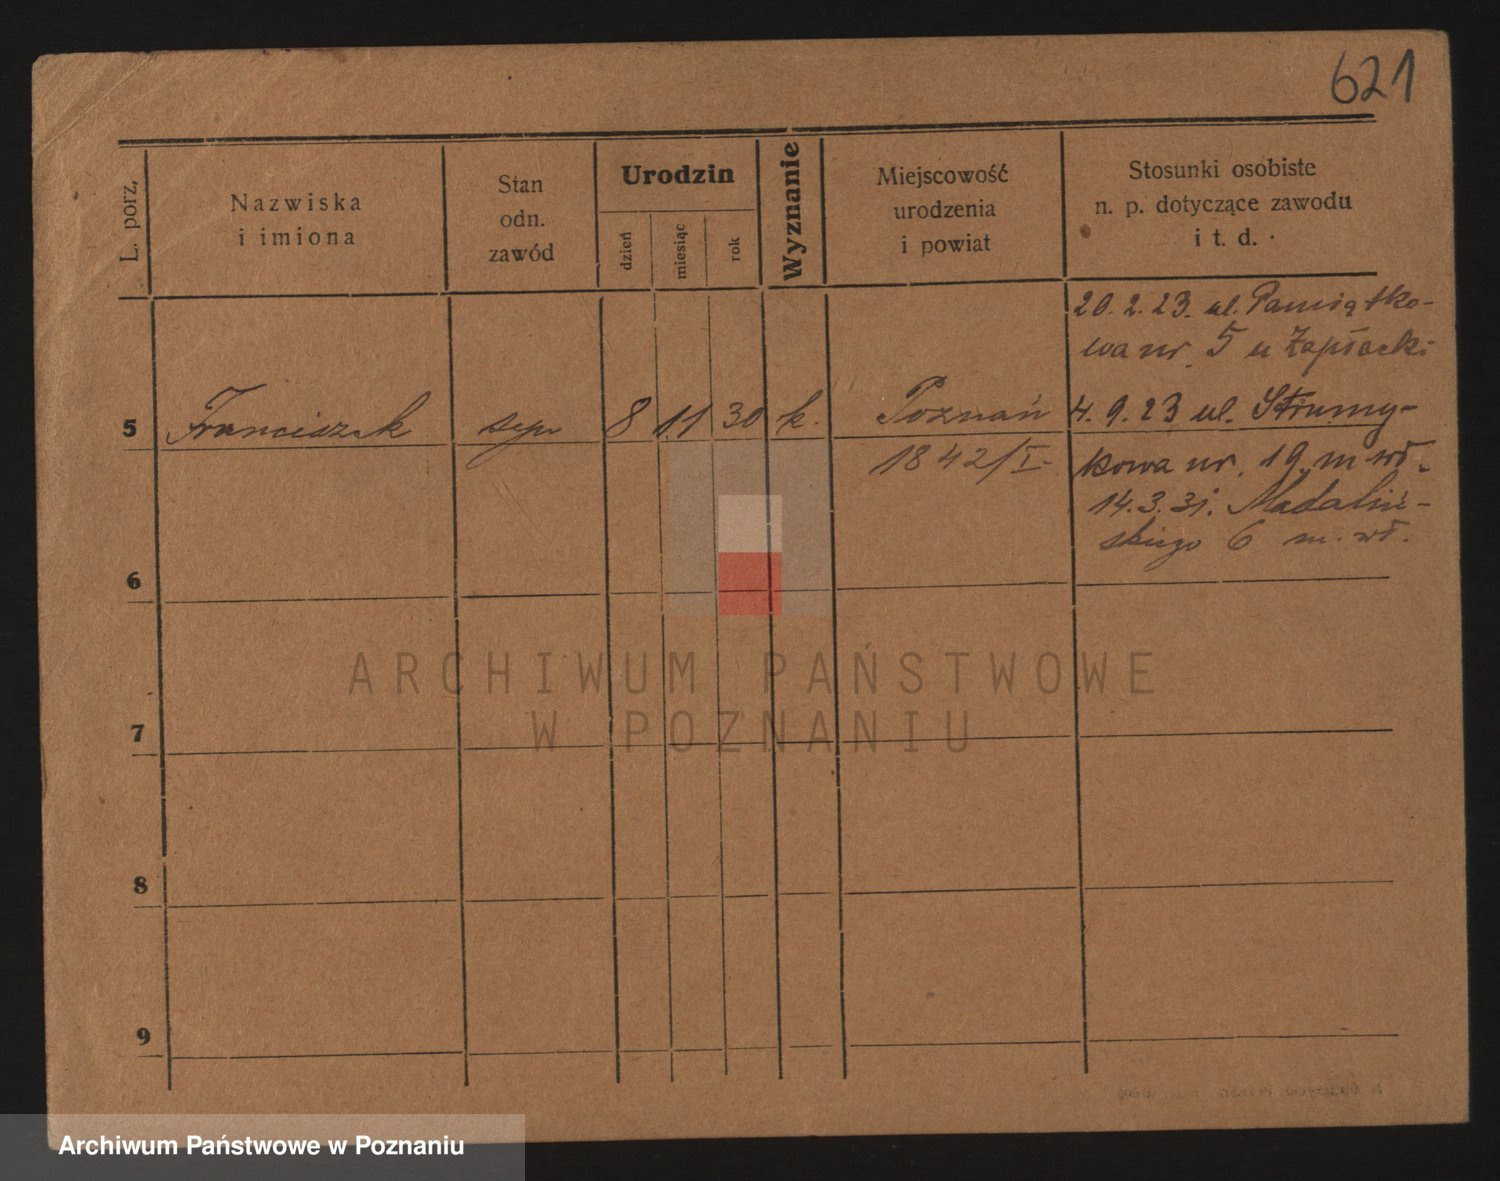 621
L. porz.
Nazwiska
i imiona
Stan
odn.
zawód
Urodzin
dzień
miesiąc
rok
Wyznanie
Miejscowość
urodzenia
i powiat
Stosunki osobiste
n. p. dotyczące zawodu
i t. d.
20. 2. 23. ul. Pamiątko-
wa nr. 5 u Zapłocki
5 Franciszek syn 8 11 30 k. Poznań 4. 9. 23 ul. Strumy-
1842/I- kowa nr. 19 m wł.
14. 3. 31. Madaliń-
skiego 6 m. wł.
6
ARCHIWUM PAŃSTWOWE
W POZNANIU
7
8
9
Archiwum Państwowe w Poznaniu